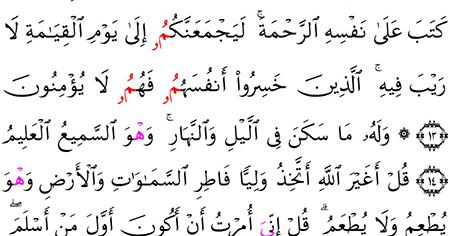 كَتَبَ عَلَىٰ نَفْسِهِ ٱلرَّحْمَةَۚ لَيَجْمَعَنَّكُمُۥٓ إِلَىٰ يَوْمِ ٱلْقِيَٰمَةِ لَا
رَيْبَ فِيهِۚ ٱلَّذِينَ خَسِرُوٓاْ أَنفُسَهُمُۥ فَهُمُۥ لَا يُؤْمِنُونَ
﴿١٣﴾ ۞ وَلَهُۥ مَا سَكَنَ فِى ٱلَّيْلِ وَٱلنَّهَارِۚ وَهْوَ ٱلسَّمِيعُ ٱلْعَلِيمُ
﴿١٤﴾ قُلْ أَغَيْرَ ٱللَّهِ أَتَّخِذُ وَلِيّٗا فَاطِرِ ٱلسَّمَٰوَٰتِ وَٱلْأَرْضِ وَهْوَ
يُطْعِمُ وَلَا يُطْعَمُۗ قُلْ إِنِّىَ أُمِرْتُ أَنْ أَكُونَ أَوَّلَ مَنْ أَسْلَمَۖ